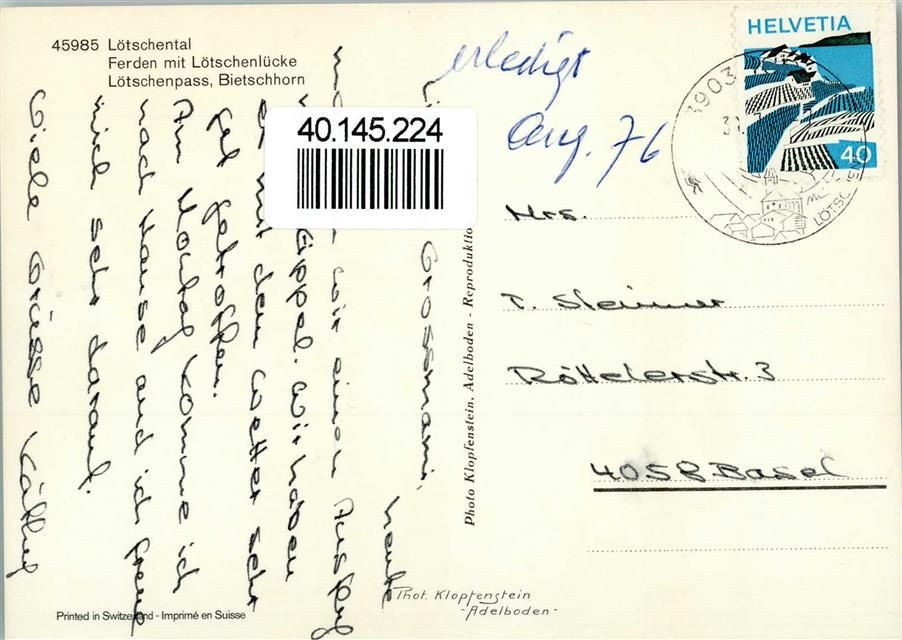 45985 Lötschental
Ferden mit Lötschenlücke
Lötschenpass, Bietschhorn
erledigt
Aug. 76
HELVETIA
40
3903
LÖTSCHEN
40.145.224
Mrs.
T. Steiner
Röttelerstr. 3
4058 Basel
Grossmami,
heute
wir einen Ausflug
Wir haben
es mit dem Wetter sehr
gut getroffen.
Am Montag komme ich
nach Hause und ich freue
mich sehr darauf.
Viele Grüsse Käthy
Photo Klopfenstein, Adelboden - Reproduktio
Phot. Klopfenstein
-Adelboden-
Printed in Switzerland - Imprimé en Suisse